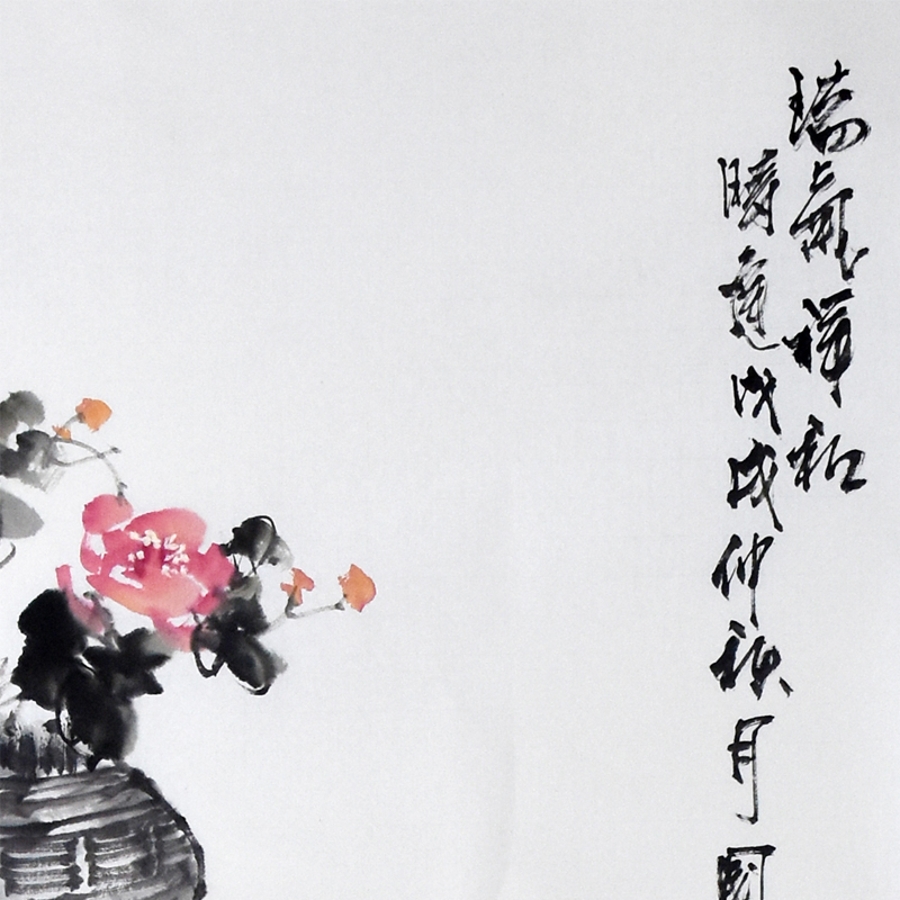 瑞氣祥和
時逢戊戌仲秋月圓